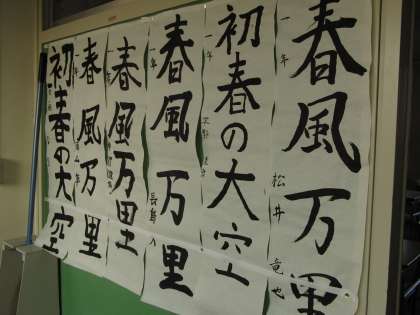 春風万里
一年
松井竜也
初春の大空
一年
春風万里
一年
春風万里
一年
春風万里
初春の大空